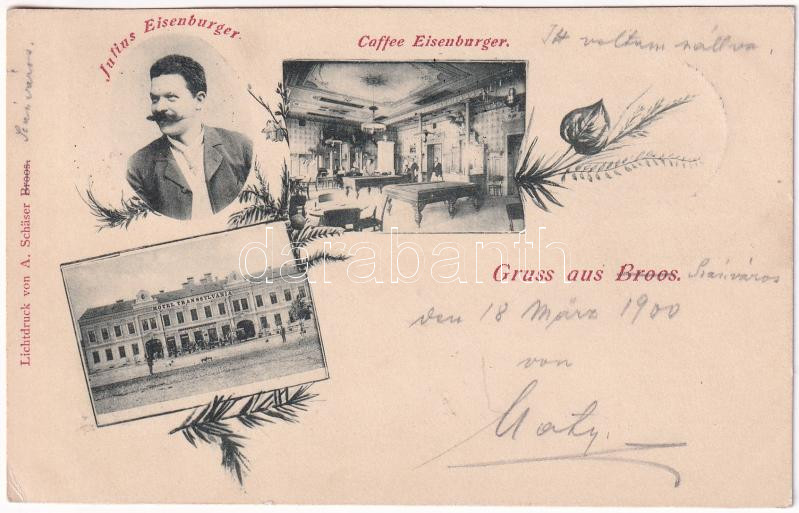 Julius Eisenburger.
Caffee Eisenburger.
Itt voltam szállva.
HOTEL TRANSSYLVANIA
darabanth.com
Gruss aus Broos. Szászváros
den 18 März 1900
von
Lichtdruck von A. Schäser Broos. Szászváros.